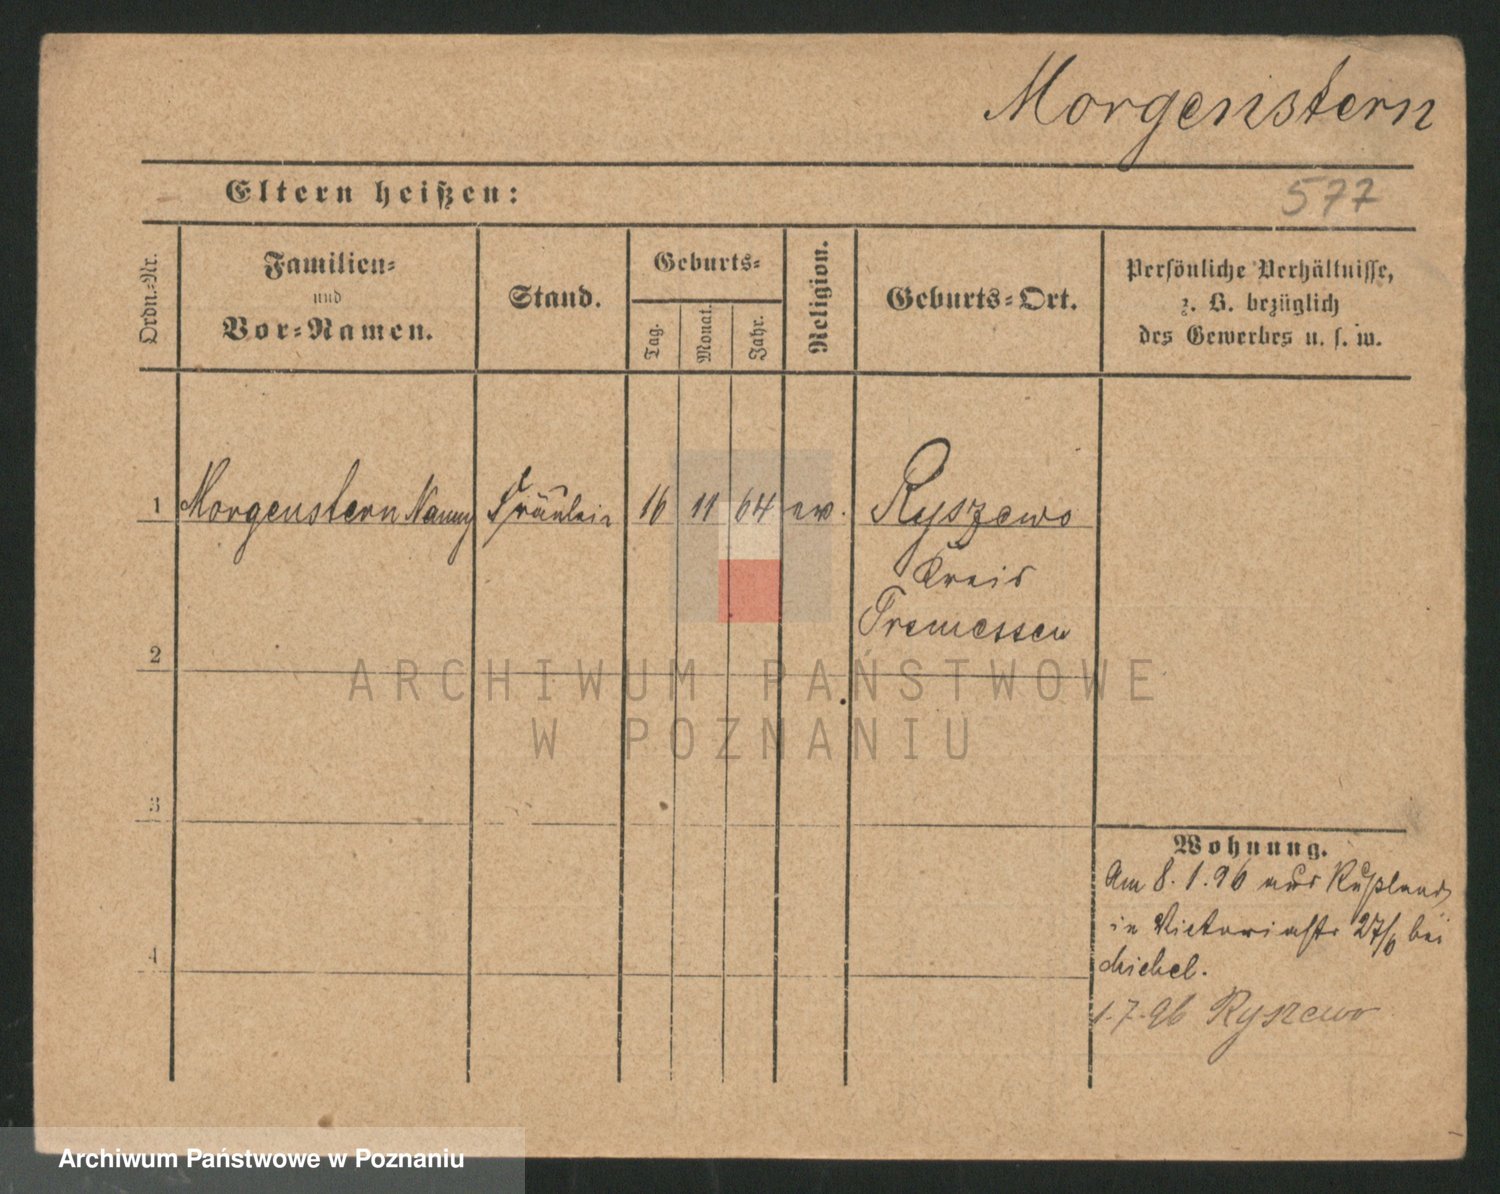 Morgenstern
Eltern heißen:
577
Ordn.-Nr.
Familien-
und
Vor-Namen.
Stand.
Geburts-
Tag.
Monat.
Jahr.
Religion.
Geburts-Ort.
Persönliche Verhältnisse,
z. B. bezüglich
des Gewerbes u. s. w.
1 Morgenstern Nanny Fräulein 16 11 64 ev. Ryszewo
Kreis
Tremessen
2
ARCHIWUM PAŃSTWOWE
W POZNANIU
3
Wohnung.
Am 8.1.96 aus Rußland
in Victoriastr 27/ bei
1.7.96 Ryszewo
4
Archiwum Państwowe w Poznaniu